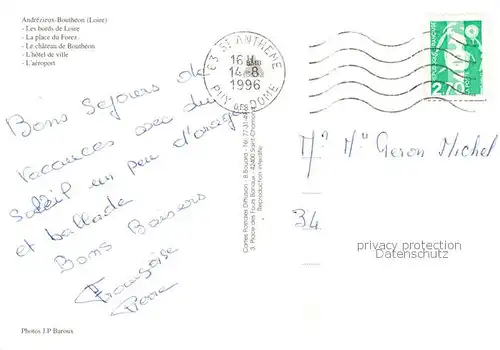 Andrézieux-Bouthéon (Loire)
- Les bords de Loire
- La place du Forez
- Le château de Bouthéon
- L'hôtel de ville
- L'aéroport
63 ST ANTHEME
16 H
14-8
1996
PUY DE DOME
2,70
Bons Sejours de
vacances avec du
Soleil un peu d'orage
et ballade
Bons Baisers
Françoise
Pierre
Cartes Postales Diffusion - B. Bouard - Tél. 77.31
3, Place des Tours Bonaux - 42400 Saint-Chamond
Reproduction interdite
Mr Mme Geron Michel
34
privacy protection
Datenschutz
Photos J.P Baroux